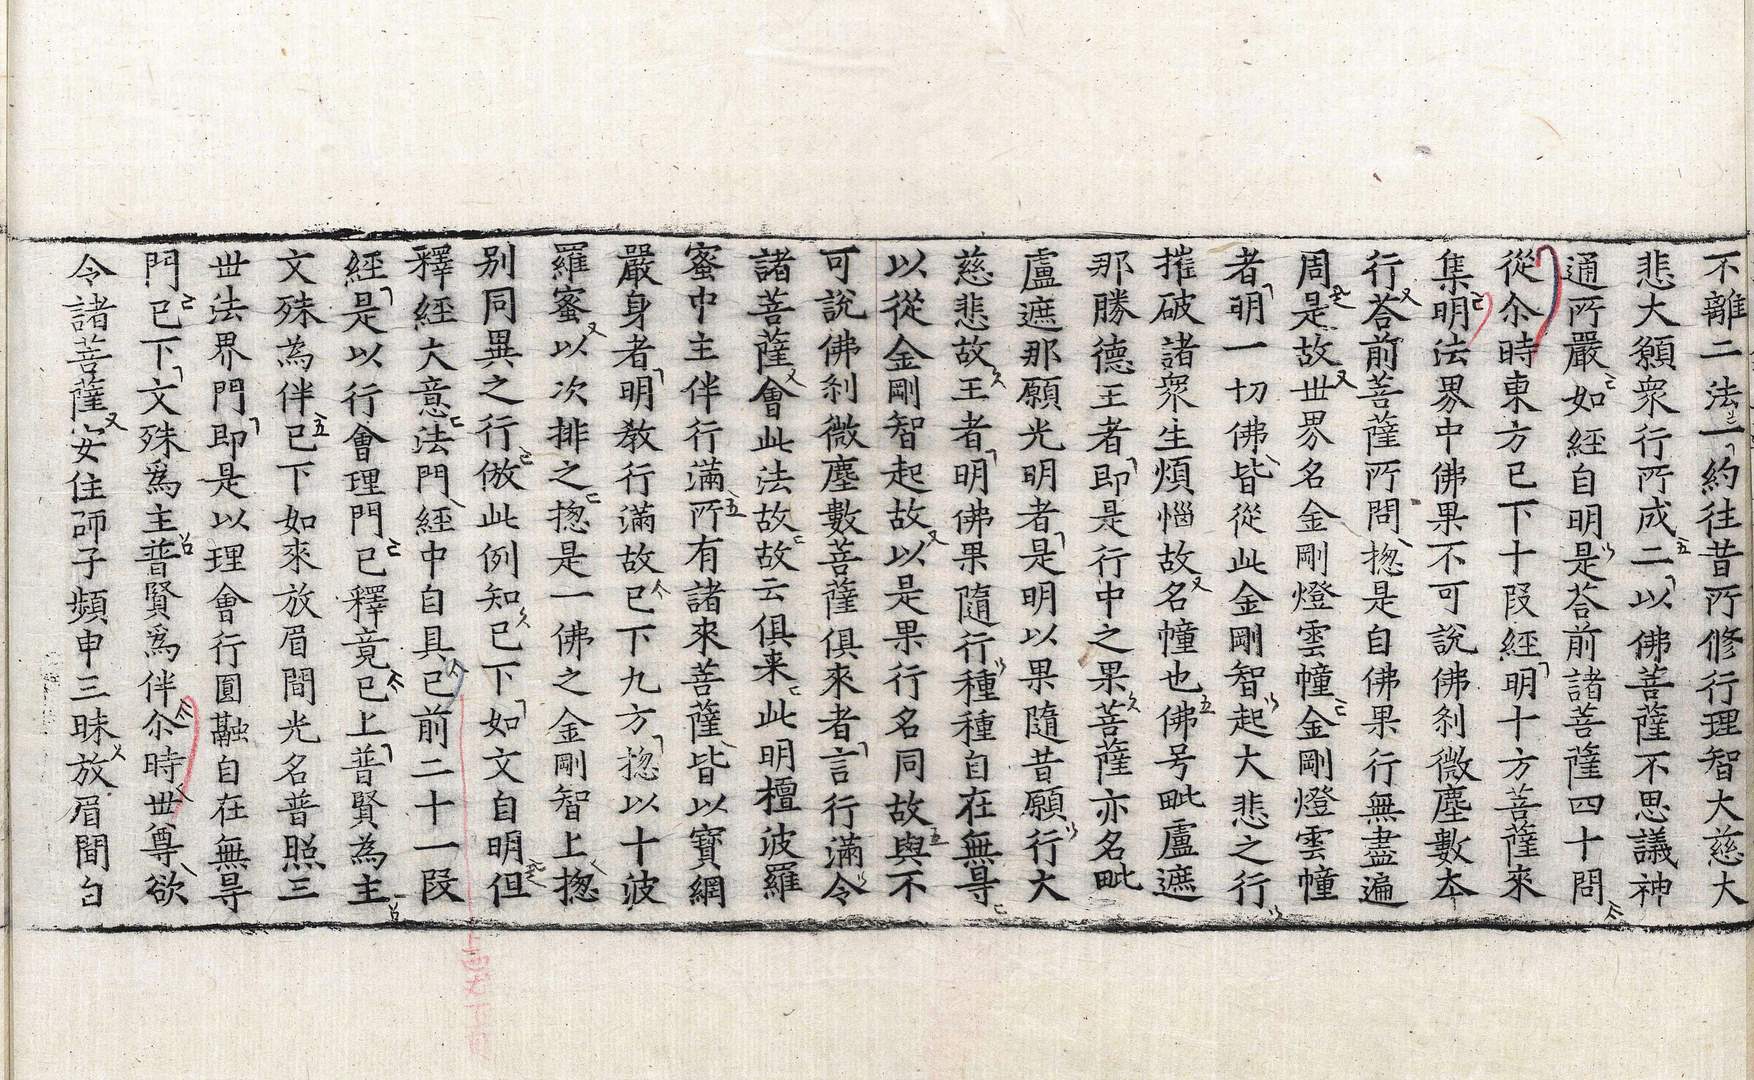 不離二法一約往昔所修行理智大慈大
悲大願衆行所成二以佛菩薩不思議神
通所嚴如經自明是荅前諸菩薩四十問
從尒時東方已下十叚經明十方菩薩來
集明法界中佛果不可說佛刹微塵數夲
行荅前菩薩所問揔是自佛果行無盡遍
周是故世界名金剛燈雲幢金剛燈雲幢
者明一切佛皆從此金剛智起大悲之行
摧破諸衆生煩惱故名幢也佛号毗盧遮
那勝德王者即是行中之果菩薩亦名毗
盧遮那願光明者是明以果隨昔願行大
慈悲故王者明佛果隨行種種自在無㝵
以從金剛智起故以是果行名同故與不
可說佛刹微塵數菩薩俱來者言行滿令
諸菩薩會此法故故云俱来此明檀波羅
蜜中主伴行滿所有諸來菩薩皆以寶網
嚴身者明教行滿故已下九方揔以十波
羅蜜以次排之揔是一佛之金剛智上揔
别同異之行倣此例知已下如文自明但
釋經大意法門經中自具已前二十一叚
經是以行會理門已釋竟已上普賢為主
文殊為伴已下如來放眉間光名普照三
世法界門即是以理會行圓融自在無㝵
門已下文殊爲主普賢爲伴尒時世尊欲
令諸菩薩安住師子頻申三昧放眉間白